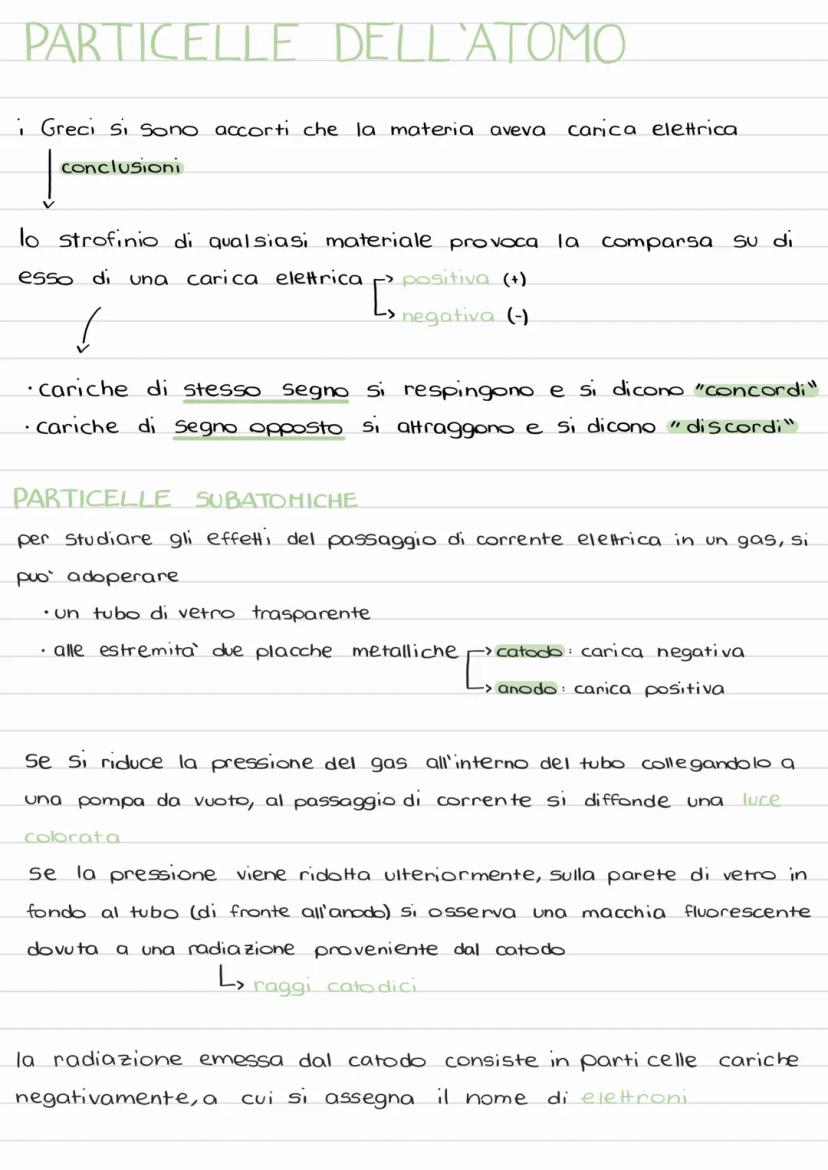 PARTICELLE DELL'ATOMO
i Greci si sono accorti che la materia aveva carica elettrica
conclusioni
lo strofinio di qualsiasi materiale provoca la comparsa su di
esso di una carica elettrica → positiva (+)
→ negativa (-)
• cariche di stesso segno si respingono e si dicono "concordi"
• cariche di segno opposto si attraggono e si dicono "discordi"
PARTICELLE SUBATOMICHE
per studiare gli effetti del passaggio di corrente elettrica in un gas, si
puo' adoperare
• un tubo di vetro trasparente
• alle estremita' due placche metalliche → catodo: carica negativa
→ anodo: carica positiva
se si riduce la pressione del gas all'interno del tubo collegandolo a
una pompa da vuoto, al passaggio di corrente si diffonde una luce
colorata
se la pressione viene ridotta ulteriormente, sulla parete di vetro in
fondo al tubo (di fronte all'anodo) si osserva una macchia fluorescente
dovuta a una radiazione proveniente dal catodo
↳ raggi catodici
la radiazione emessa dal catodo consiste in particelle cariche
negativamente, a cui si assegna il nome di elettroni